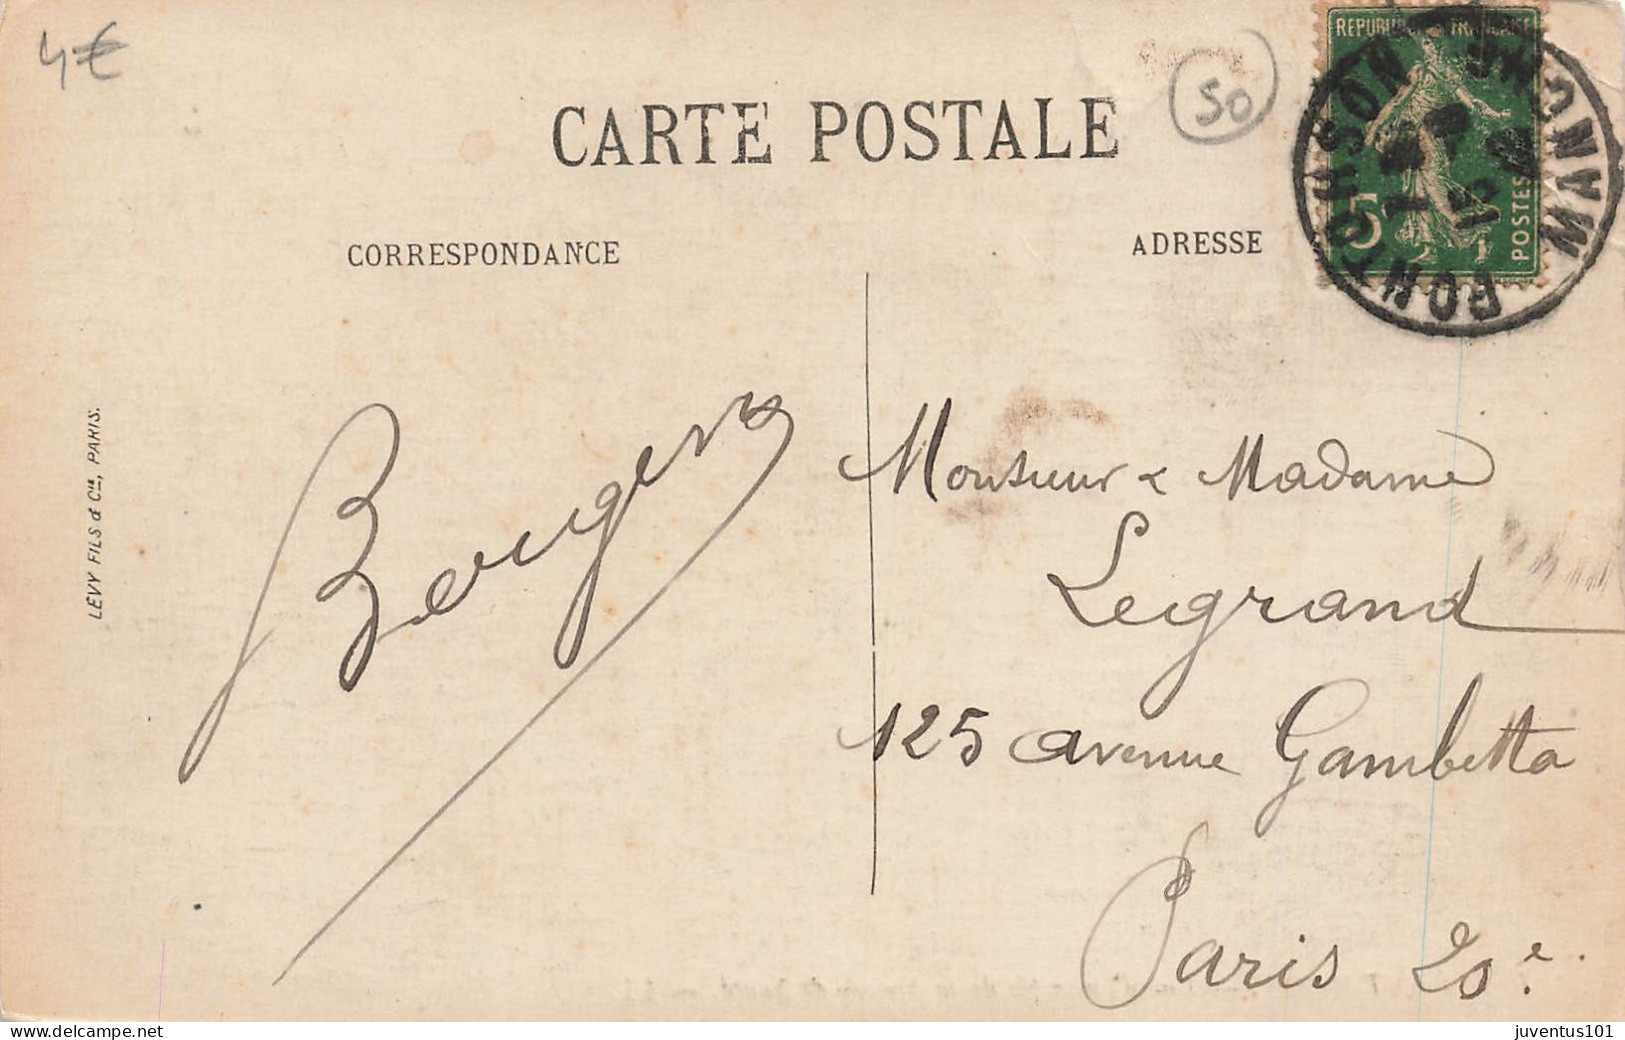 4€
50
REPUBLIQUE FRANÇAISE
5
POSTES
PONTORSON MANCHE
CARTE POSTALE
CORRESPONDANCE
ADRESSE
LEVY FILS & Cie, PARIS.
Monsieur & Madame
Legrand
125 avenue Gambetta
Paris 20e.
juventus101